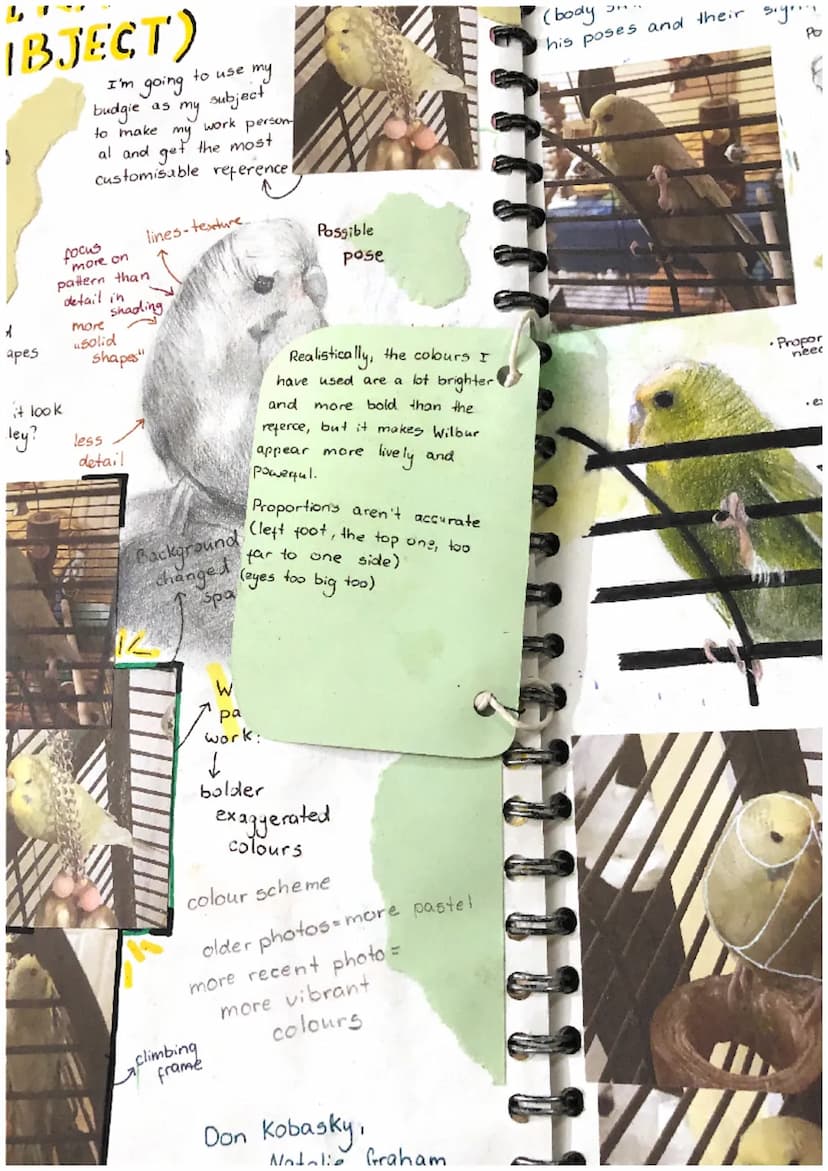 BJECT)
I'm going to use my
budgie as my subject
to make my work person-
al and get the most
customisable reference
lines-texture
focus
more on
pattern than
detail in
shading
more
"solid
shapes"
less
detail
Possible
pose
apes
it look
ley?
Background
changed
spa
Realistically, the colours I
have used are a lot brighter
and more bold than the
referce, but it makes Wilbur
appear more lively and
powerful.
Proportions aren't accurate
(left foot, the top one, too
far to one side)
(eyes too big too)
W
pa
work:
bolder
exaggerated
colours
colour scheme
older photos=more pastel
more recent photo=
more vibrant
colours
climbing
frame
Don Kobasky,
Natalie Graham
(body
his poses and their
Po
• Propor
need